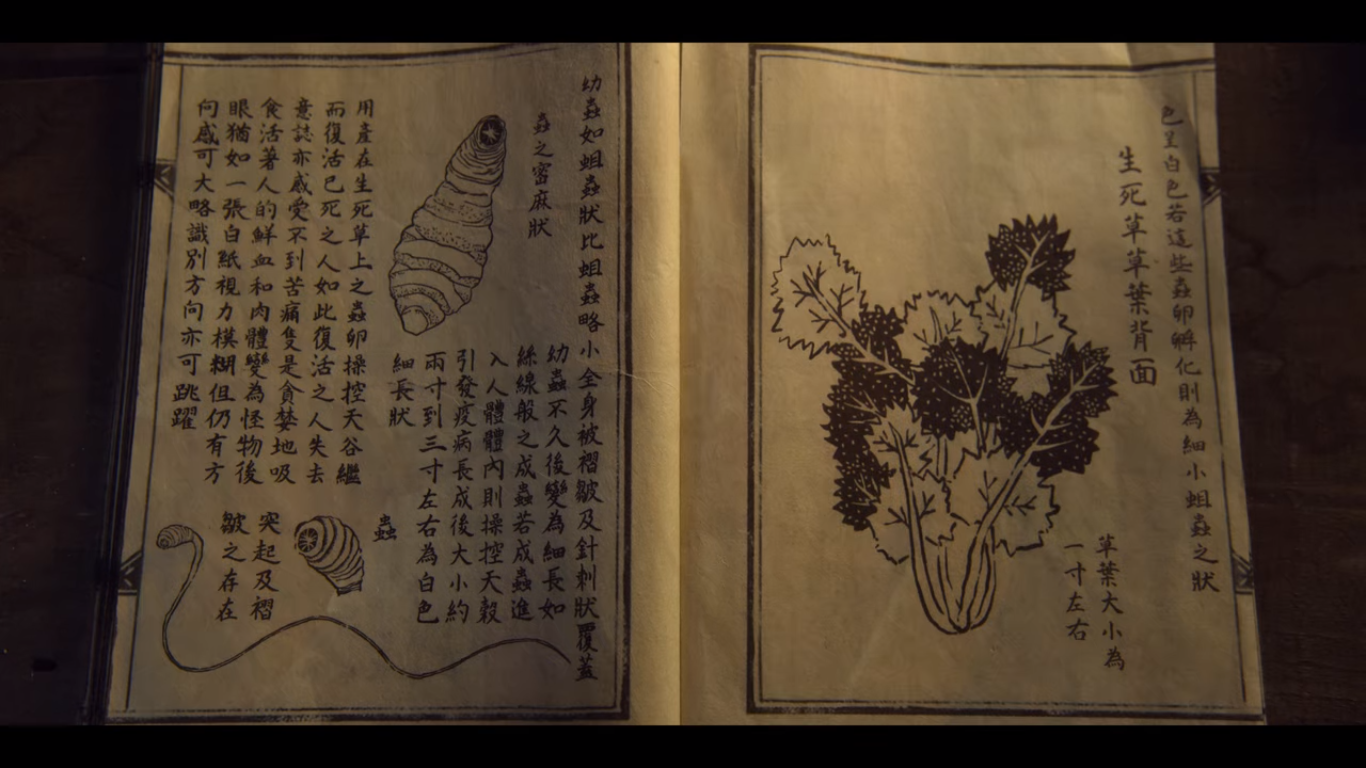 色呈白色若這些蟲卵孵化則為細小蛆蟲之狀
生死草草葉背面
草葉大小為
一寸左右
幼蟲如蛆蟲狀比蛆蟲略小全身被褶皺及針刺狀覆蓋
蟲之密麻狀
幼蟲不久後變為細長如
絲線般之成蟲若成蟲進
入人體體內則操控天穀
引發疫病長成後大小約
兩寸到三寸左右為白色
細長狀
用產在生死草上之蟲卵操控天谷繼
而復活已死之人如此復活之人失去
意誌亦感愛不到苦痛隻是貪婪地吸
食活著人的鮮血和肉體變為怪物後
眼猶如一張白紙視力模糊但仍有方
向感可大略識別方向亦可跳躍
蟲
突起及褶
皺之存在